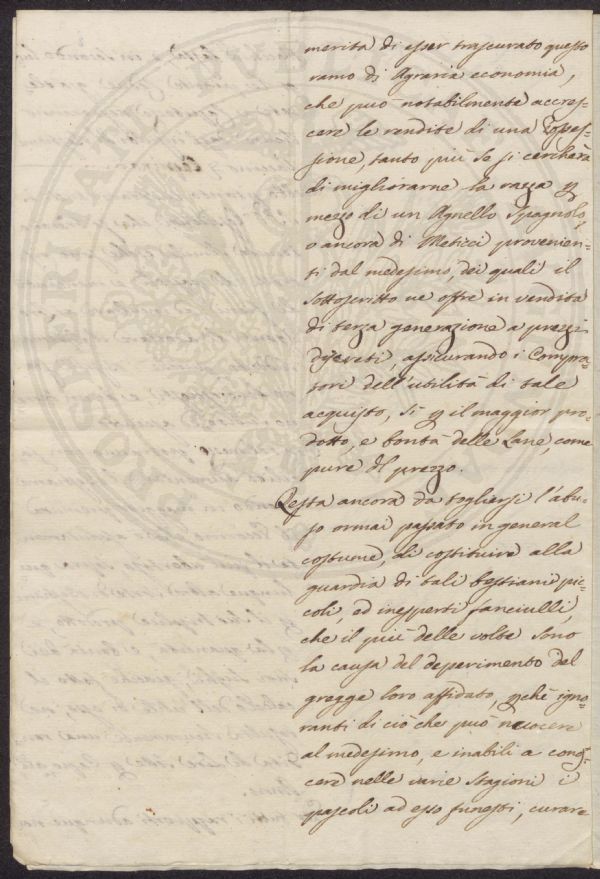 merita di esser trascurato questo
ramo di Agraria economia,
che può notabilmente accres-
cere le rendite di una Posses-
sione, tanto più se si cercherà
di migliorarne la razza p
mezzo di un Agnello Spagnolo,
o ancora di Meticci provenien-
ti dal medesimo, dei quali il
Sottoscritto ne offre in vendita
di terza generazione a prezzi
discreti, assicurando i Compra-
tori dell'utilità di tale
acquisto, sì p il maggior pro-
dotto, e bontà delle Lane, come
pure del prezzo.
Resta ancora da togliersi l'abu-
so ormai passato in general
costume, di costituire alla
guardia di tali bestiami pic-
coli, ed inesperti fanciulli,
che il più delle volte sono
la causa del deperimento del
gregge loro affidato, pchè igno-
ranti di ciò che può nuocere
al medesimo, e inabili a conos-
cere nelle varie Stagioni i
pascoli ad esso funesti, curare